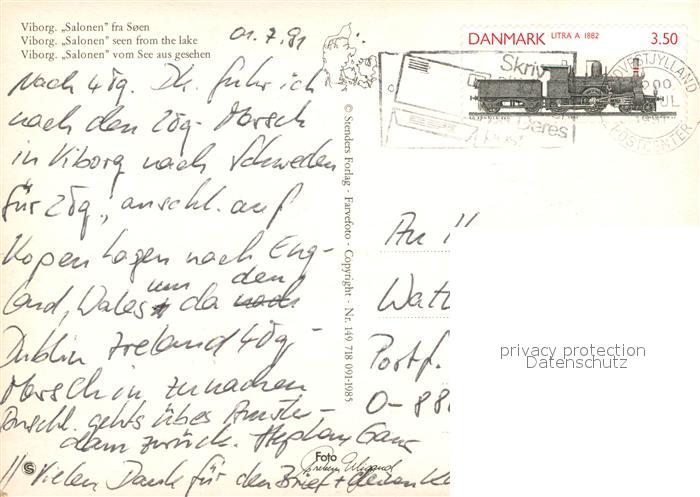 Viborg. „Salonen" fra Søen
Viborg. „Salonen" seen from the lake
Viborg. „Salonen" vom See aus gesehen
01.7.91
DANMARK LITRA A 1882 3.50
Skriv
Deres
post
ØSTJYLLAND
POSTCENTER
nach 4tg. Dk. fuhr ich
nach den 2tg-Marsch
in Viborg nach Schweden
für 2tg., anschl. auf
Kopenhagen nach Eng-
land, Wales um da den
Dublin Ireland 4tg-
Marsch in zu machen
Anschl. gehts über Amster-
dam zurück. Stephan
// Vielen Dank für den Brief + deinen
© Stenders Forlag - Farvefoto - Copyright - Nr. 149 718 091-1985
An
Postf.
privacy protection
Datenschutz
Foto